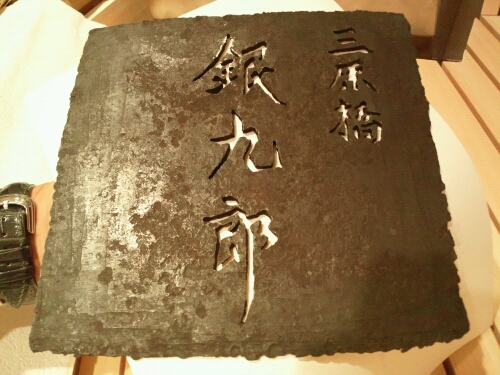 三原橋
銀九郎